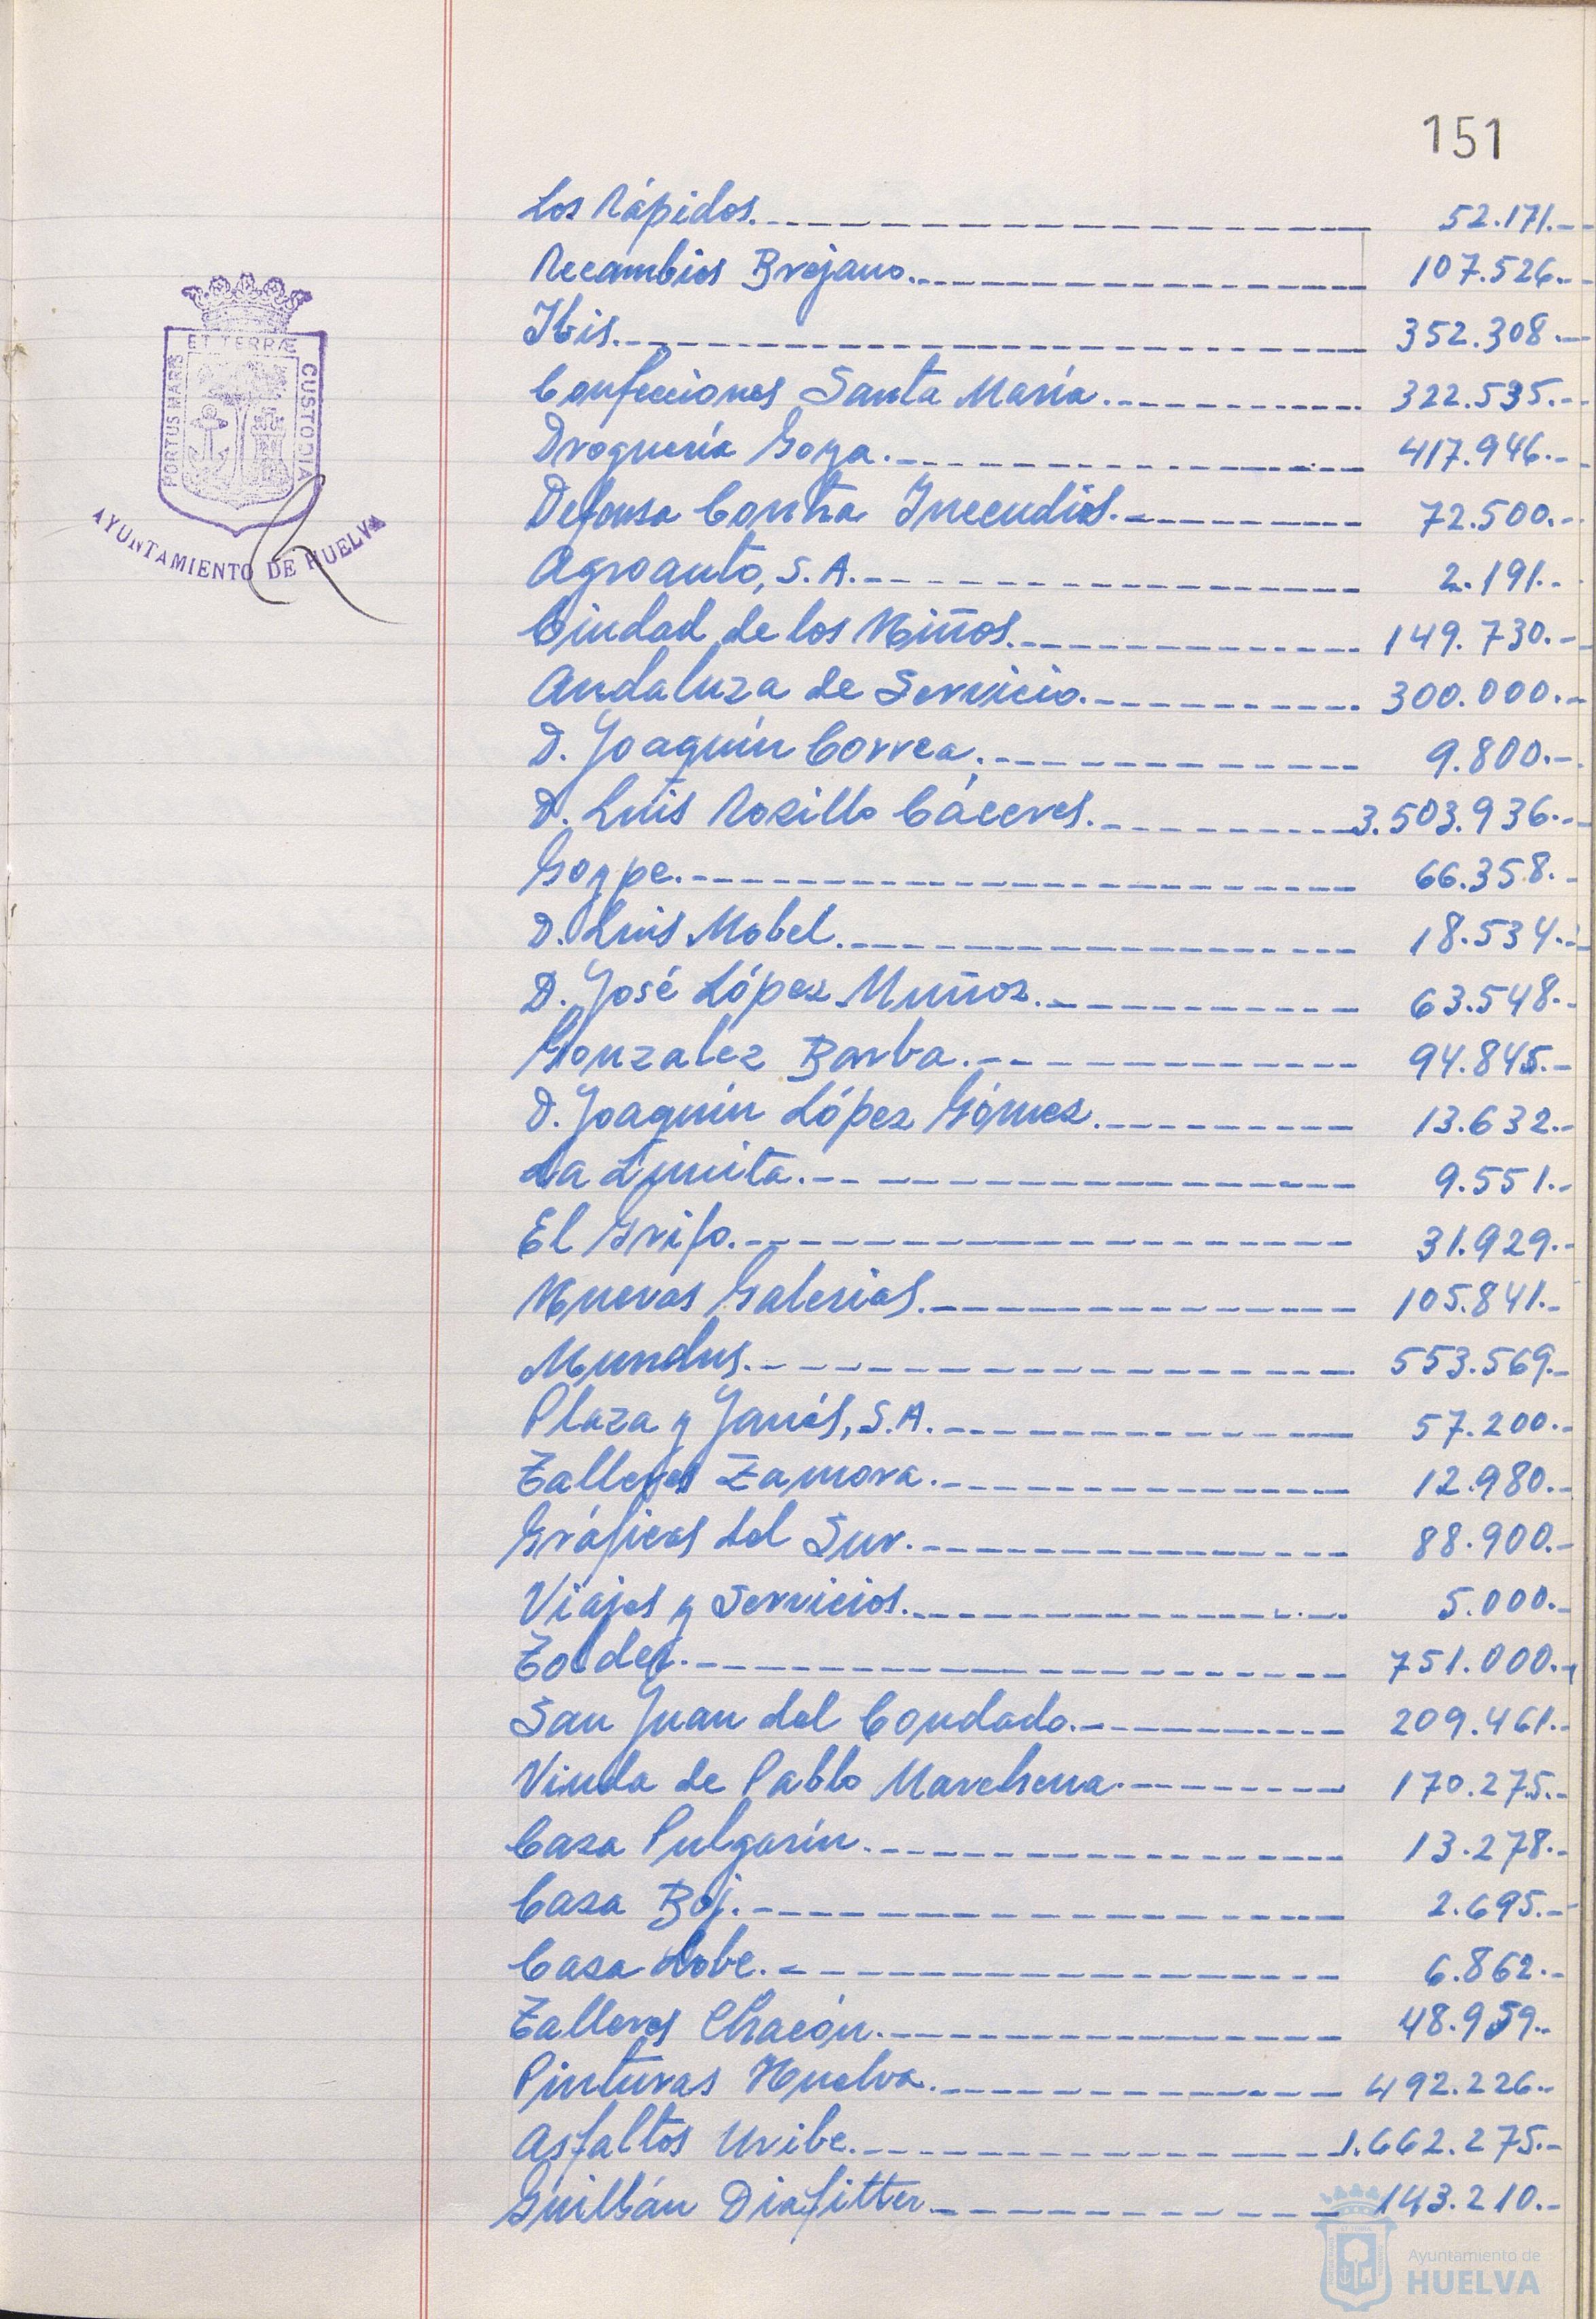 151
Los Rápidos.---------- 52.171.--
Recambios Brejano.---------- 107.526.--
Ibis.---------- 352.308.--
Confecciones Santa María.---------- 322.535.--
Droguería Goya.---------- 417.946.--
Defensa Contra Incendios.---------- 72.500.--
Agroauto, S.A.---------- 2.191.-
Ciudad de los Niños.---------- 149.730.--
Andaluza de Servicio.---------- 300.000.--
D. Joaquín Correa.---------- 9.800.--
D. Luis Rosillo Cáceres.---------- 3.503.936.--
Goype.---------- 66.358.-
D. Luis Mabel.---------- 18.534.--
D. José López Muñoz.---------- 63.548.-
Gonzalez Barba.---------- 94.845.-
D. Joaquín López Gómez.---------- 13.632.-
La .---------- 9.551.-
El Grifo.---------- 31.929.-
Nuevas Galerias.---------- 105.841.-
Mundus.---------- 553.569.-
Plaza y Janés, S.A.---------- 57.200.-
Talleres Zamora.---------- 12.980.-
Gráficas del Sur.---------- 88.900.-
Viajes y Servicios.---------- 5.000.-
.---------- 751.000.-
San Juan del Condado.---------- 209.461.-
Viuda de Pablo Marchena.---------- 170.275.-
Casa Pulgarín.---------- 13.278.-
Casa Boj.---------- 2.695.-
Casa Lobe.---------- 6.862.-
Talleres Chacón.---------- 48.959.-
Pinturas Huelva.---------- 492.226.-
Asfaltos Uribe.---------- 1.662.275.-
Guillán Diafitter.---------- 143.210.-
PORTUS MARIS ET TERRÆ CUSTODIA
AYUNTAMIENTO DE HUELVA
Ayuntamiento de
HUELVA